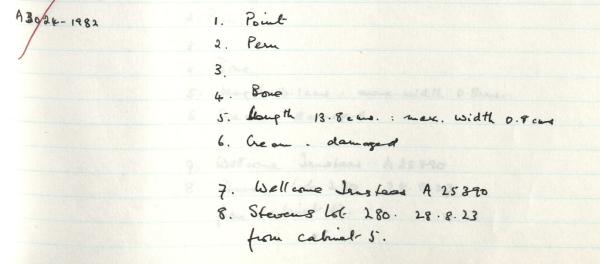 A3024-1982
1. Point
2. Peru
3.
4. Bone
5. Length 13.8 cms. : max. width 0.8 cms
6. Cream. damaged
7. Wellcome Trustees A 25890
8. Stevens Lot 280. 28.8.23
from cabinet 5.